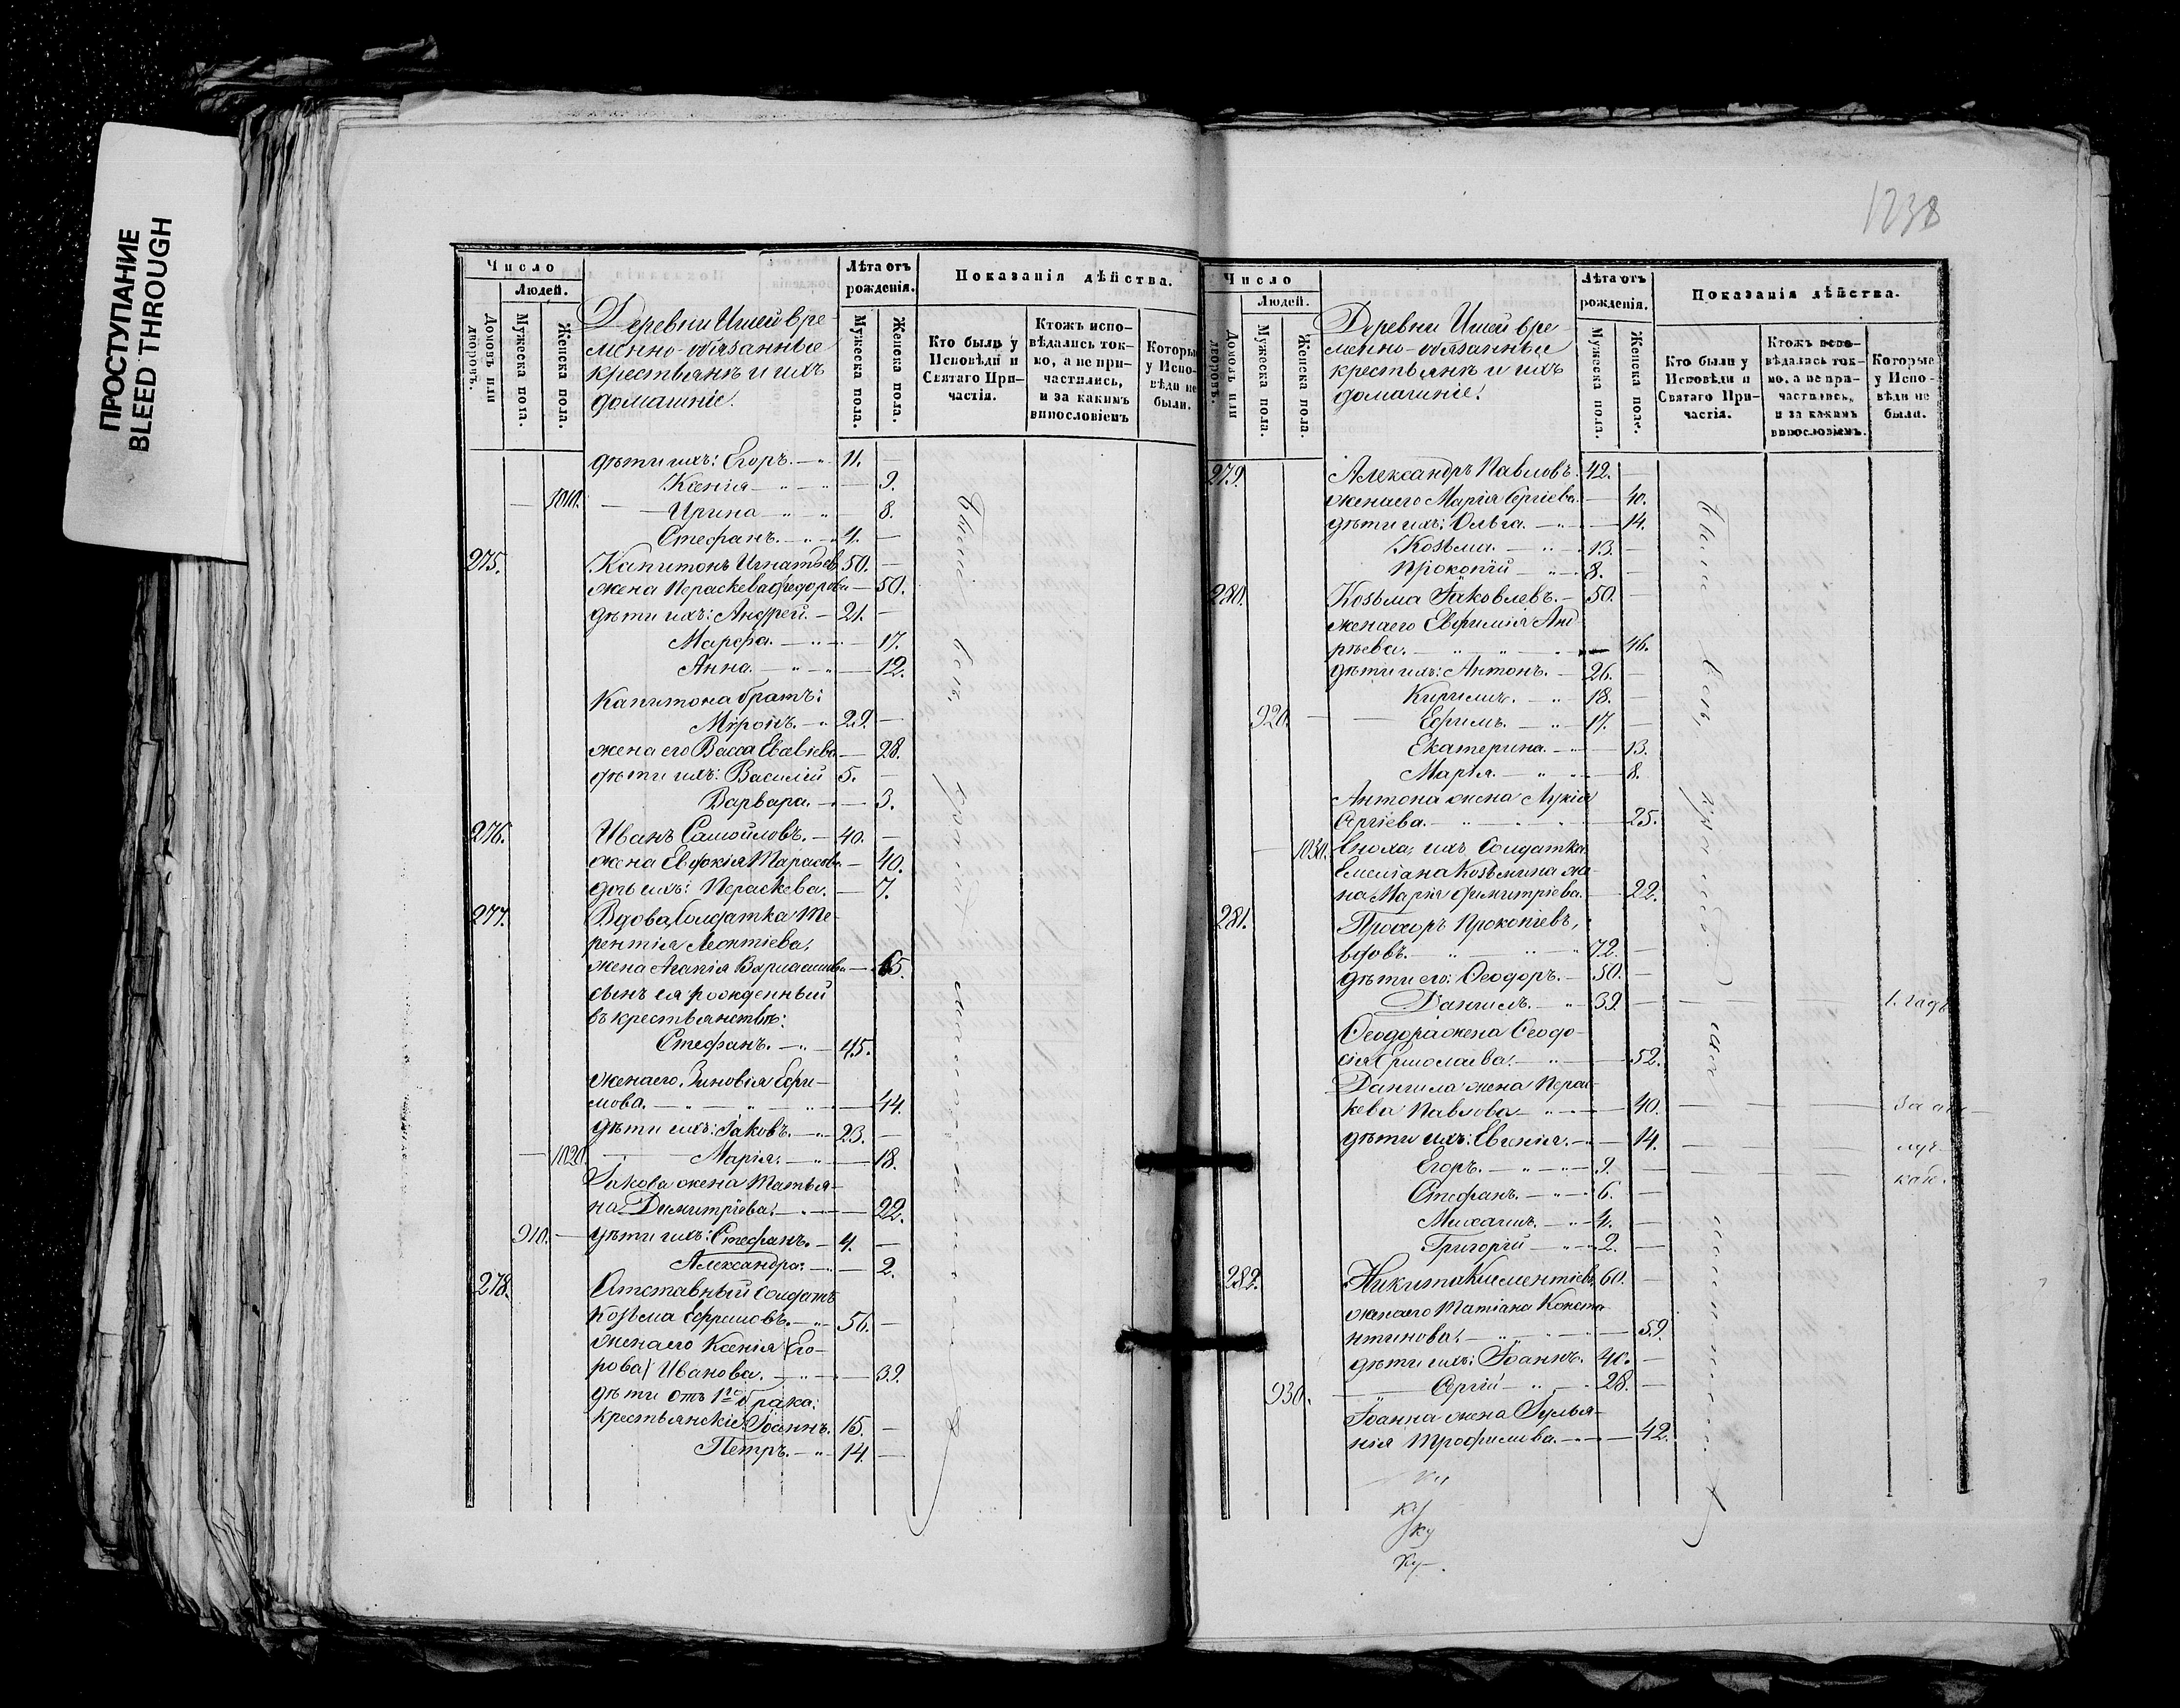 ПРОСТУПАНИЕ
BLEED THROUGH
1238
Число
Людей.
Домовъ или дворовъ.
Мужеска пола.
Женска пола.
Деревни Ишей вре-
менно-обязанные
крестьянъ и ихъ
домашніе.
Лѣта отъ рожденія.
Мужеска пола.
Женска пола.
Показанія дѣйства.
Кто были у Исповѣди и Святаго Причастія.
Ктожъ исповѣдались токмо, а не причастились, и за какимъ винословіемъ
Которые у Исповѣди не были.
дѣти ихъ: Егоръ. 11.
Ксенія 9.
1010. Ирина 8.
Стефанъ. 4.
275. Капитонъ Игнатьевъ 50.
жена Пераскева Федорова 50.
дѣти ихъ: Андрей. 21.
Марфа. 17.
Анна. 12.
Капитона братъ:
Мѵронъ. 29.
жена его Васса Евсвіева 28.
дѣти ихъ: Василій 5.
Варвара. 3.
276. Иванъ Самойловъ. 40.
жена Евдокія Тарасова 40.
дчь ихъ: Пераскева. 7.
277. Вдова, Солдатка Те-
рентія Леонтіева,
жена Агапія Варлаамова 65.
сынъ ея рожденный
въ крестьянствѣ:
Стефанъ. 45.
жена его Зиновія Ефи-
мова. 44.
дѣти ихъ: Іаковъ. 23.
1020. Марія. 18.
Іакова жена Татья-
на Димитріева. 22.
910. дѣти ихъ: Стефанъ. 4.
Александра. 2.
278. Отставный солдатъ
Козьма Ефремовъ. 56.
жена его Ксенія (Его-
рова) Иванова. 39.
дѣти отъ 1го брака:
крестьянскіе: Іоаннъ. 15.
Петръ. 14.
Были
Число
Людей.
Домовъ или дворовъ.
Мужеска пола.
Женска пола.
Деревни Ишей вре-
менно-обязанные
крестьянъ и ихъ
домашніе:
Лѣта отъ рожденія.
Мужеска пола.
Женска поле.
Показанія дѣйства.
Кто были у Исповѣди и Святаго Причастія.
Ктожъ исповѣдались токмо, а не причастились, и за какимъ винословіемъ.
Которые у Исповѣди не были.
279. Александръ Павловъ. 42.
жена его Марія Сергіева. 40.
дѣти ихъ: Ольга. 14.
Козьма. 13.
Прокопій 8.
280. Козьма Іаковлевъ. 50.
жена его Евфимія Анд-
рѣева. 46.
дѣти ихъ: Антонъ. 26.
Кириллъ. 18.
920. Ефимъ. 17.
Екатерина. 13.
Марія. 8.
Антона жена Лукія
Сергіева. 25.
1030. Сноха, ихъ Солдатка
Емеліана Козьмина же-
на Марія Димитріева. 22.
281. Прохоръ Прокопіевъ,
вдовъ. 72.
дѣти его: Ѳеодоръ. 50.
Даніилъ. 39. 1. годъ
Ѳеодора жена Ѳеодо-
сія Ермолаева. 52.
Даніила жена Перас-
кева Павлова. 40. За от-
дѣти ихъ: Евгенія. 14. луч-
Егоръ. 9. кою.
Стефанъ. 6.
Михаилъ. 4.
Григорій 2.
282. Никита Климентіевъ 60.
жена его Татіана Конста-
нтинова. 59.
дѣти ихъ: Іоаннъ. 40.
930. Сергій 28.
Іоанна жена Іулья-
нія Трофимова. 42.
Были
ку
ку
ку